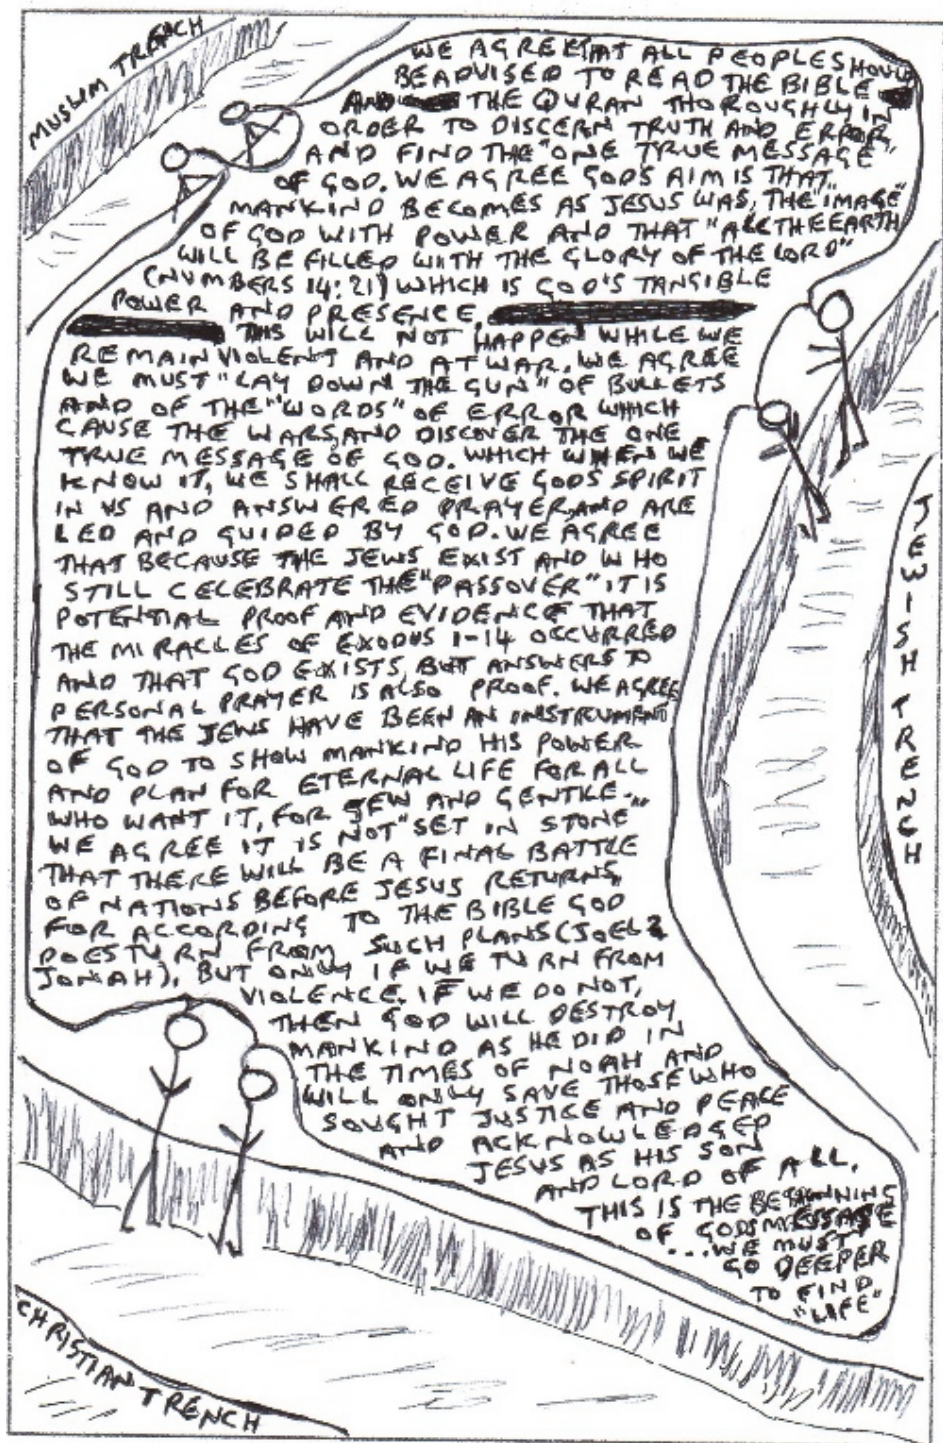 MUSLIM TRENCH
WE AGREE THAT ALL PEOPLE SHOULD
BE ADVISED TO READ THE BIBLE
AND THE QURAN THOROUGHLY IN
ORDER TO DISCERN TRUTH AND ERROR
AND FIND THE "ONE TRUE MESSAGE"
OF GOD. WE AGREE GODS AIM IS THAT
MANKIND BECOMES AS JESUS WAS, THE "IMAGE"
OF GOD WITH POWER AND THAT "ALL THE EARTH
WILL BE FILLED WITH THE GLORY OF THE LORD"
(NUMBERS 14:21) WHICH IS GOD'S TANGIBLE
POWER AND PRESENCE.
THIS WILL NOT HAPPEN WHILE WE
REMAIN VIOLENT AND AT WAR. WE AGREE
WE MUST "LAY DOWN THE GUN" OF BULLETS
AND OF THE "WORDS" OF ERROR WHICH
CAUSE THE WARS, AND DISCOVER THE ONE
TRUE MESSAGE OF GOD. WHICH WHEN WE
KNOW IT, WE SHALL RECEIVE GODS SPIRIT
IN US AND ANSWERED PRAYER, AND ARE
LED AND GUIDED BY GOD. WE AGREE
THAT BECAUSE THE JEWS EXIST AND WHO
STILL CELEBRATE THE "PASSOVER" IT IS
POTENTIAL PROOF AND EVIDENCE THAT
THE MIRACLES OF EXODUS 1-14 OCCURRED
AND THAT GOD EXISTS, BUT ANSWERS TO
PERSONAL PRAYER IS ALSO PROOF. WE AGREE
THAT THE JEWS HAVE BEEN AN INSTRUMENT
OF GOD TO SHOW MANKIND HIS POWER
AND PLAN FOR ETERNAL LIFE FOR ALL
WHO WANT IT, FOR JEW AND GENTILE.
WE AGREE IT IS NOT "SET IN STONE"
THAT THERE WILL BE A FINAL BATTLE
OF NATIONS BEFORE JESUS RETURNS,
FOR ACCORDING TO THE BIBLE GOD
DOES TURN FROM SUCH PLANS (JOEL 2
JONAH), BUT ONLY IF WE TURN FROM
VIOLENCE. IF WE DO NOT,
THEN GOD WILL DESTROY
MANKIND AS HE DID IN
THE TIMES OF NOAH AND
WILL ONLY SAVE THOSE WHO
SOUGHT JUSTICE AND PEACE
AND ACKNOWLEDGED
JESUS AS HIS SON
AND LORD OF ALL.
THIS IS THE BEGINNING
OF GODS MESSAGE
...WE MUST
GO DEEPER
TO FIND
"LIFE"
JEWISH TRENCH
CHRISTIAN TRENCH